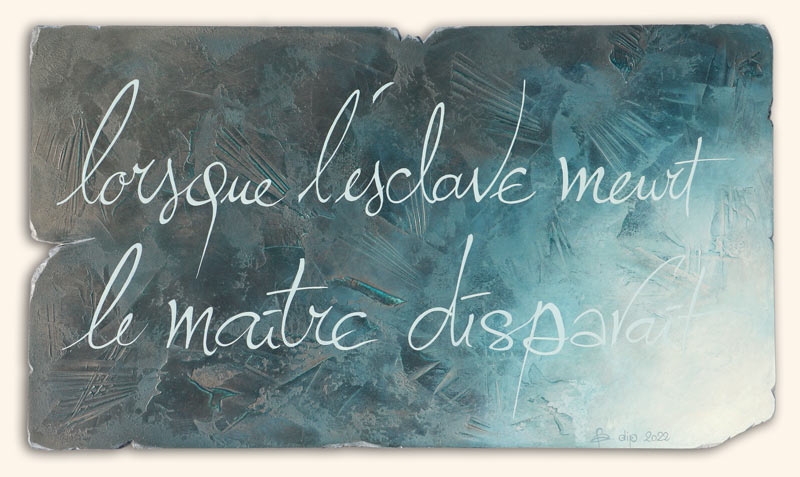 lorsque l'esclave meurt
le maître disparaît
dip 2022